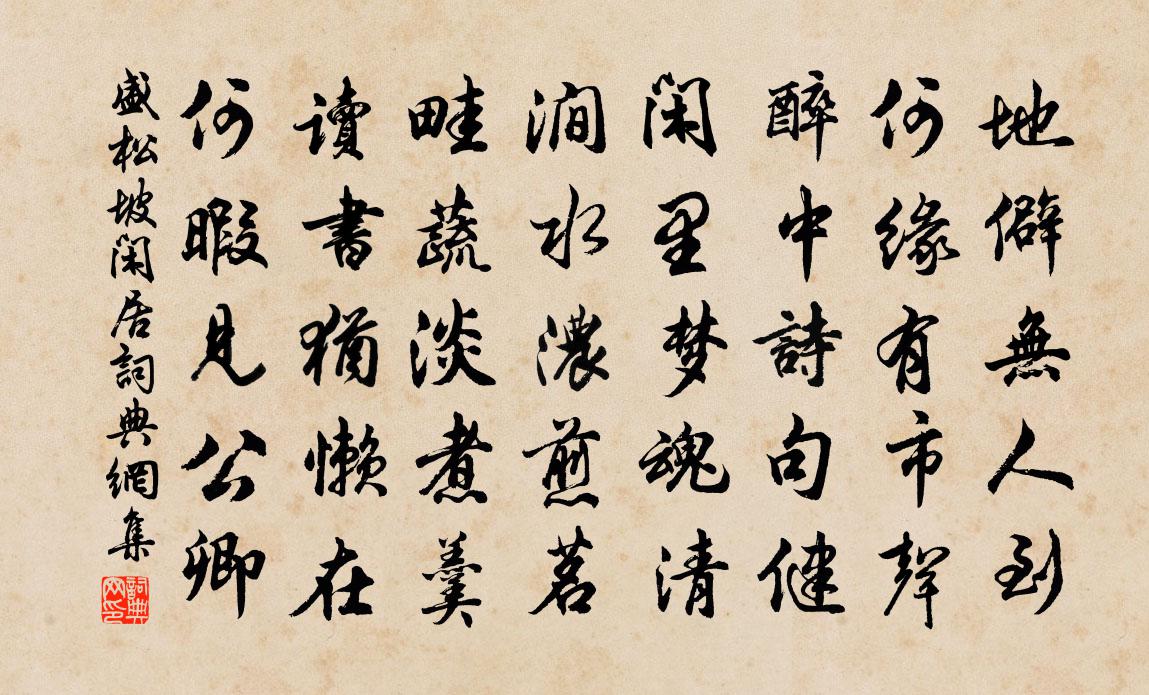 地僻無人到
何緣有市聲
醉中詩句健
闲里梦魂清
澗水濃煎茗
畦蔬淡煮羹
讀書猶懒在
何暇見公卿
盛松坡闲居詞典網集
詞典网印